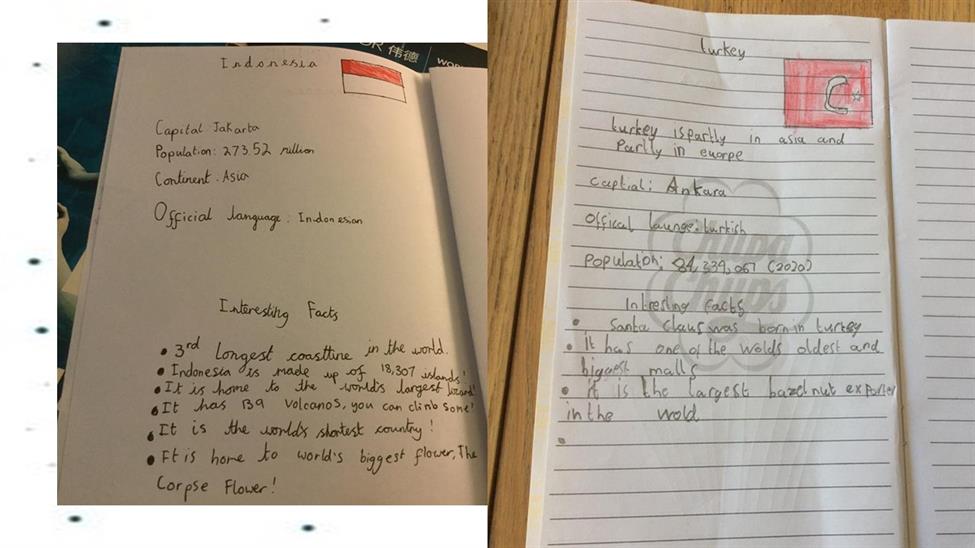 OR 伟德
WOR
Indonesia
Capital: Jakarta
Population: 273.52 million
Continent: Asia
Official language: Indonesian
Interesting Facts
• 3rd longest coastline in the world.
• Indonesia is made up of 18,307 islands!
• It is home to the world's largest lizard!
• It has 139 volcanos, you can climb some!
• It is the world's shortest country!
• It is home to world's biggest flower, The
Corpse Flower!
turkey
turkey is partly in asia and
Partly in euorpe
captial: Ankara
Offical launge: turkish
Populaton: 84,339,067 (2020)
Intresting Facts
• Santa claus was born in turkey
• It has one of the wolds oldest and
biggest malls
• It is the largest hazel nut exporter
in the wold
•
Chupa
Chups